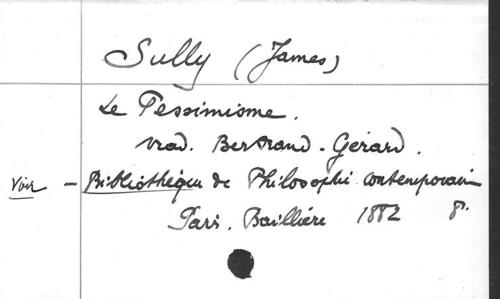 Sully (James)
Le Pessimisme.
trad. Bertrand-Gérard.
Voir - Bibliothèque de Philosophie contemporain
Paris. Baillière 1882 8°.